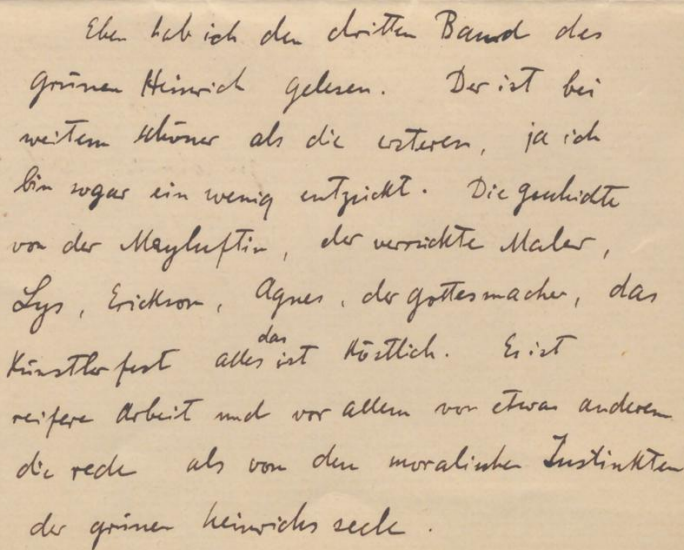 Eben hab ich den dritten Band des
grünen Heinrich gelesen. Der ist bei
weitem schöner als die ersteren, ja ich
bin sogar ein wenig entzückt. Die geschichte
von der Meyluftin, der verrückte Maler,
Lys, Erickson, Agnes, der gottesmacher, das
Künstlerfest alles das ist köstlich. Es ist
reifere Arbeit und vor allem von etwas anderem
die rede als von den moralischen Instinkten
der grünen heinrichs seele.